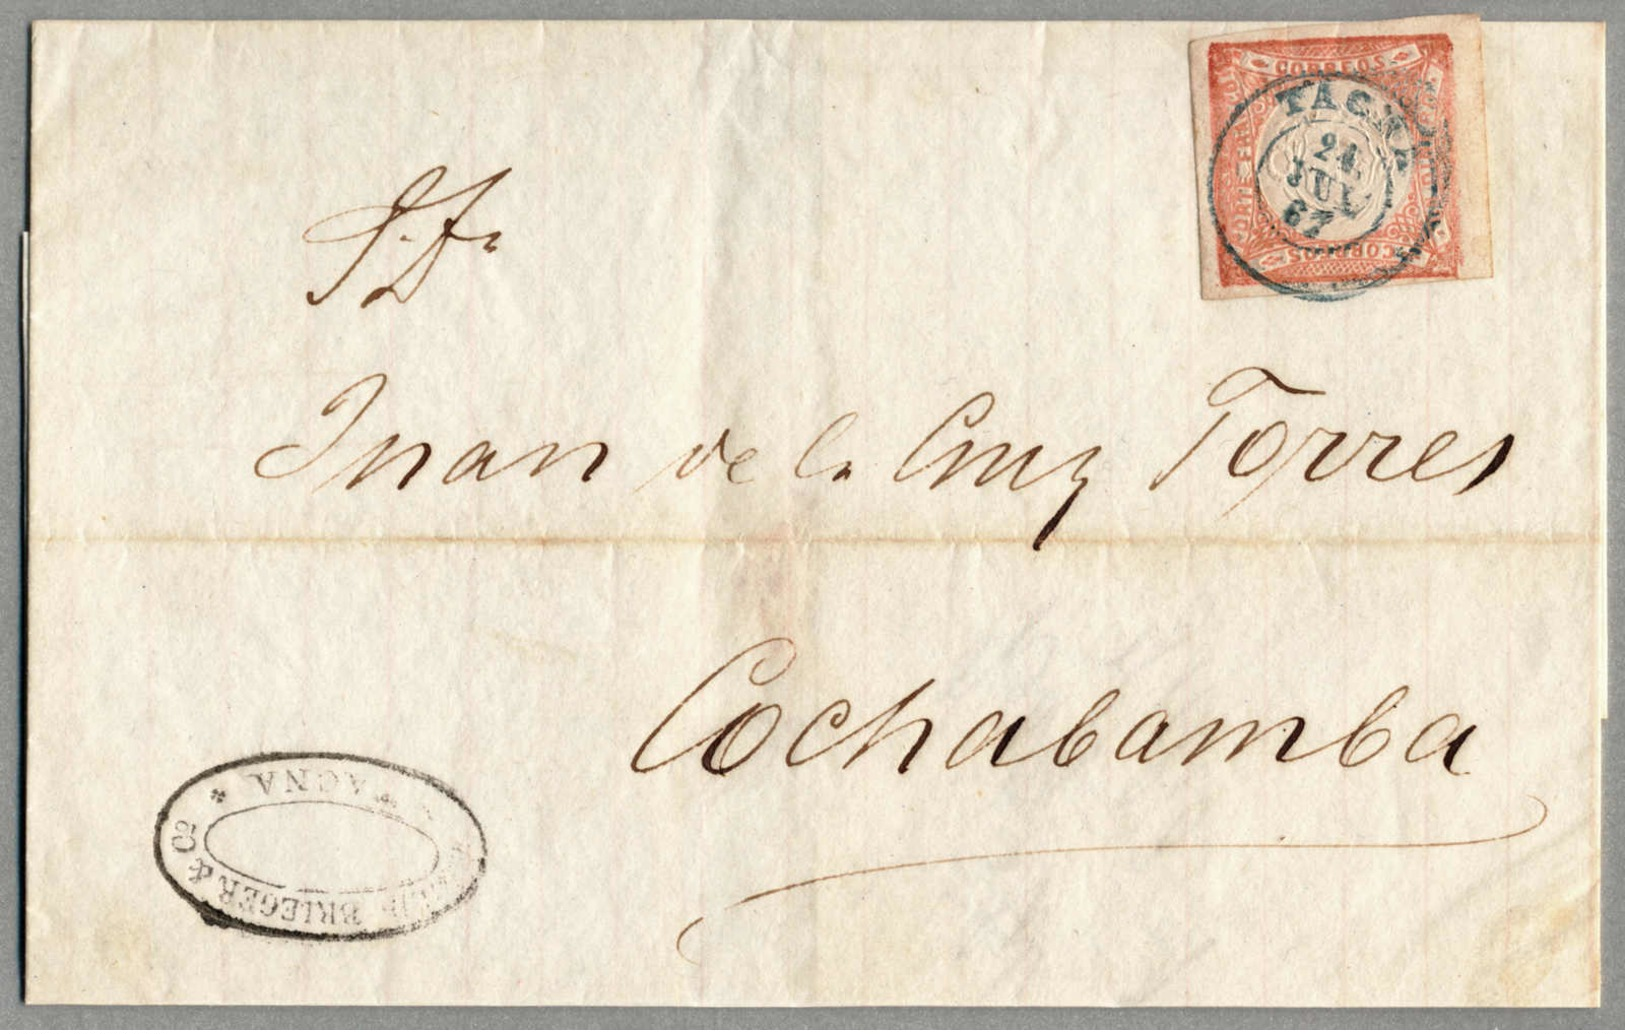 CORREOS
TACNA
24
JUL
67
CORREOS
S. D.
Juan de la Cruz Torres
Cochabamba
TACNA
BRIEGER & Co